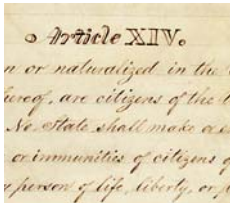 Article XIV.
n or naturalized in the
hereof, are citizens of the
No State shall make or e
or immunities of citizens o
person of life, liberty, or p